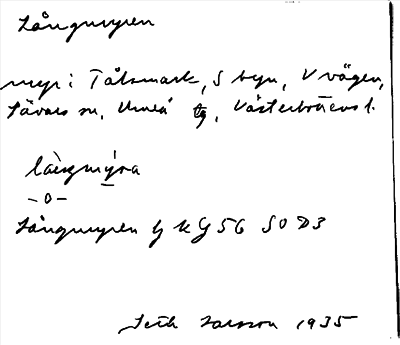 Långmyren
myr: Tålsmark, S byn, V vägen,
Sävars sn, Umeå tg, Västerbottens l.
làŋmy̱ra
-o-
Långmyren lj kG 56 SO D3
Seth Larsson 1935